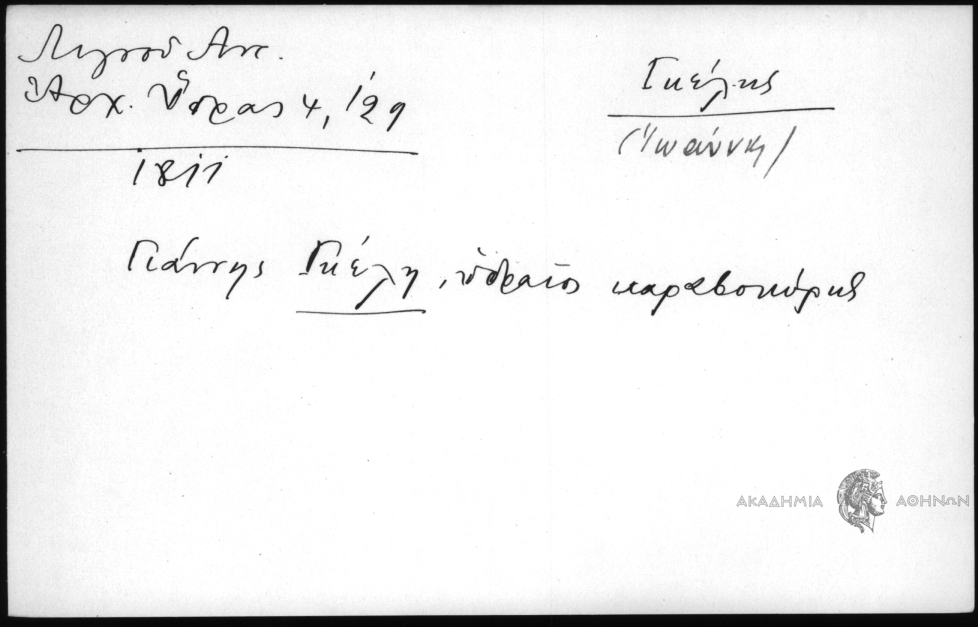 Λιγνοῦ Αντ.
Ἀρχ. Ὕδρας 4, 129
1811
Γκέλης
(Ἰωάννης)
Γιάννης Γκέλη, ὑδραῖος καραβοκύρης
ΑΚΑΔΗΜΙΑ ΑΘΗΝΩΝ